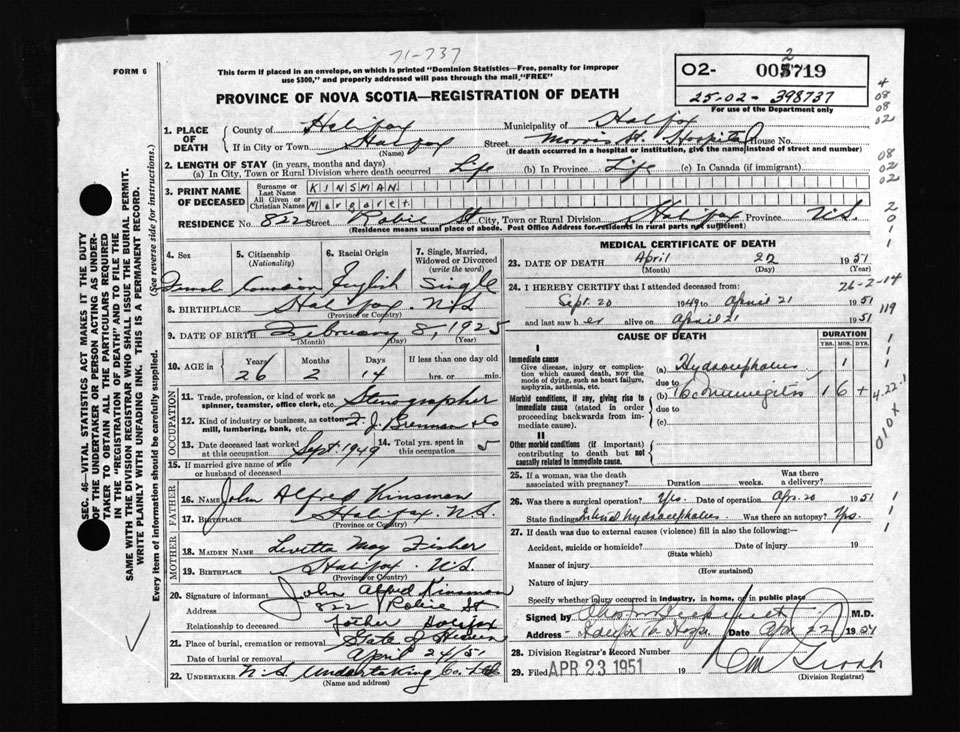 71-737
FORM 6
This form if placed in an envelope, on which is printed "Dominion Statistics—Free, penalty for improper
use $300," and properly addressed will pass through the mail, "FREE"
PROVINCE OF NOVA SCOTIA—REGISTRATION OF DEATH
O2- 005719
2
25-02-398737
For use of the Department only
1. PLACE OF DEATH
County of Halifax Municipality of Halifax
If in City or Town Halifax Street Hospital House No.
(Name) (If death occurred in a hospital or institution, give the name instead of street and number)
2. LENGTH OF STAY (in years, months and days)
(a) In City, Town or Rural Division where death occurred Life (b) In Province Life (c) In Canada (if immigrant)
3. PRINT NAME OF DECEASED
Surname or Last Name KINSMAN
All Given or Christian Names Margaret
RESIDENCE No. 822 Street Robie St City, Town or Rural Division Halifax Province N.S.
(Residence means usual place of abode. Post Office Address for residents in rural parts not sufficient)
4. Sex
5. Citizenship (Nationality) Canadian
6. Racial Origin English
7. Single, Married, Widowed or Divorced (write the word) Single
8. BIRTHPLACE Halifax N.S.
(Province or Country)
9. DATE OF BIRTH February 8, 1925
(Month) (Day) (Year)
10. AGE in Years Months Days If less than one day old
26 2 14 hrs. or min.
OCCUPATION
11. Trade, profession, or kind of work as spinner, teamster, office clerk, etc. Stenographer
12. Kind of industry or business, as cotton mill, lumbering, bank, etc. F. J. Brennan & Co
13. Date deceased last worked at this occupation Sept. 1949
14. Total yrs. spent in this occupation 5
15. If married give name of wife or husband of deceased
FATHER
16. NAME John Alfred Kinsman
17. BIRTHPLACE Halifax. N.S.
(Province or Country)
MOTHER
18. MAIDEN NAME Levetta May Fisher
19. BIRTHPLACE Halifax. N.S.
(Province or Country)
20. Signature of informant John Alfred Kinsman
Address 822 Robie St
Relationship to deceased Father Halifax
21. Place of burial, cremation or removal Gate of Heaven
Date of burial or removal April 24/51
22. UNDERTAKER N.S. Undertaking Co. Ltd.
(Name and address)
MEDICAL CERTIFICATE OF DEATH
23. DATE OF DEATH April 22 1951
(Month) (Day) (Year)
26-2-14
24. I HEREBY CERTIFY that I attended deceased from:
Sept. 20 1949 to April 21 1951
and last saw her alive on April 21 1951
CAUSE OF DEATH DURATION
YRS. MOS. DYS.
I
Immediate cause
Give disease, injury or complication which caused death, not the mode of dying, such as heart failure, asphyxia, asthenia, etc.
(a) Hydrocephalus 1
due to
Morbid conditions, if any, giving rise to immediate cause (stated in order proceeding backwards from immediate cause).
(b) Tbc Meningitis 1 6 +
due to
(c)
II
Other morbid conditions (if important) contributing to death but not causally related to immediate cause.
25. If a woman, was the death associated with pregnancy? Duration weeks. Was there a delivery?
26. Was there a surgical operation? Yes. Date of operation Apr. 20 1951
State findings Internal hydrocephalus. Was there an autopsy? Yes.
27. If death was due to external causes (violence) fill in also the following:
Accident, suicide or homicide? Date of injury 19
(State which)
Manner of injury
(How sustained)
Nature of injury
Specify whether injury occurred in industry, in home, or in public place
Signed by M.D.
Address Halifax Tb Hosp. Date Apr 22 1951
28. Division Registrar's Record Number
29. Filed APR 23 1951 19
(Division Registrar)
SEC. 46—VITAL STATISTICS ACT MAKES IT THE DUTY
OF THE UNDERTAKER OR PERSON ACTING AS UNDER-
TAKER TO OBTAIN ALL THE PARTICULARS REQUIRED
IN THE "REGISTRATION OF DEATH" AND TO FILE THE
SAME WITH THE DIVISION REGISTRAR WHO SHALL ISSUE THE BURIAL PERMIT.
WRITE PLAINLY WITH UNFADING INK. THIS IS A PERMANENT RECORD.
Every item of information should be carefully supplied. (See reverse side for instructions.)
4
08
08
02
08
02
02
2
0
1
1
119
4-22-1
010x